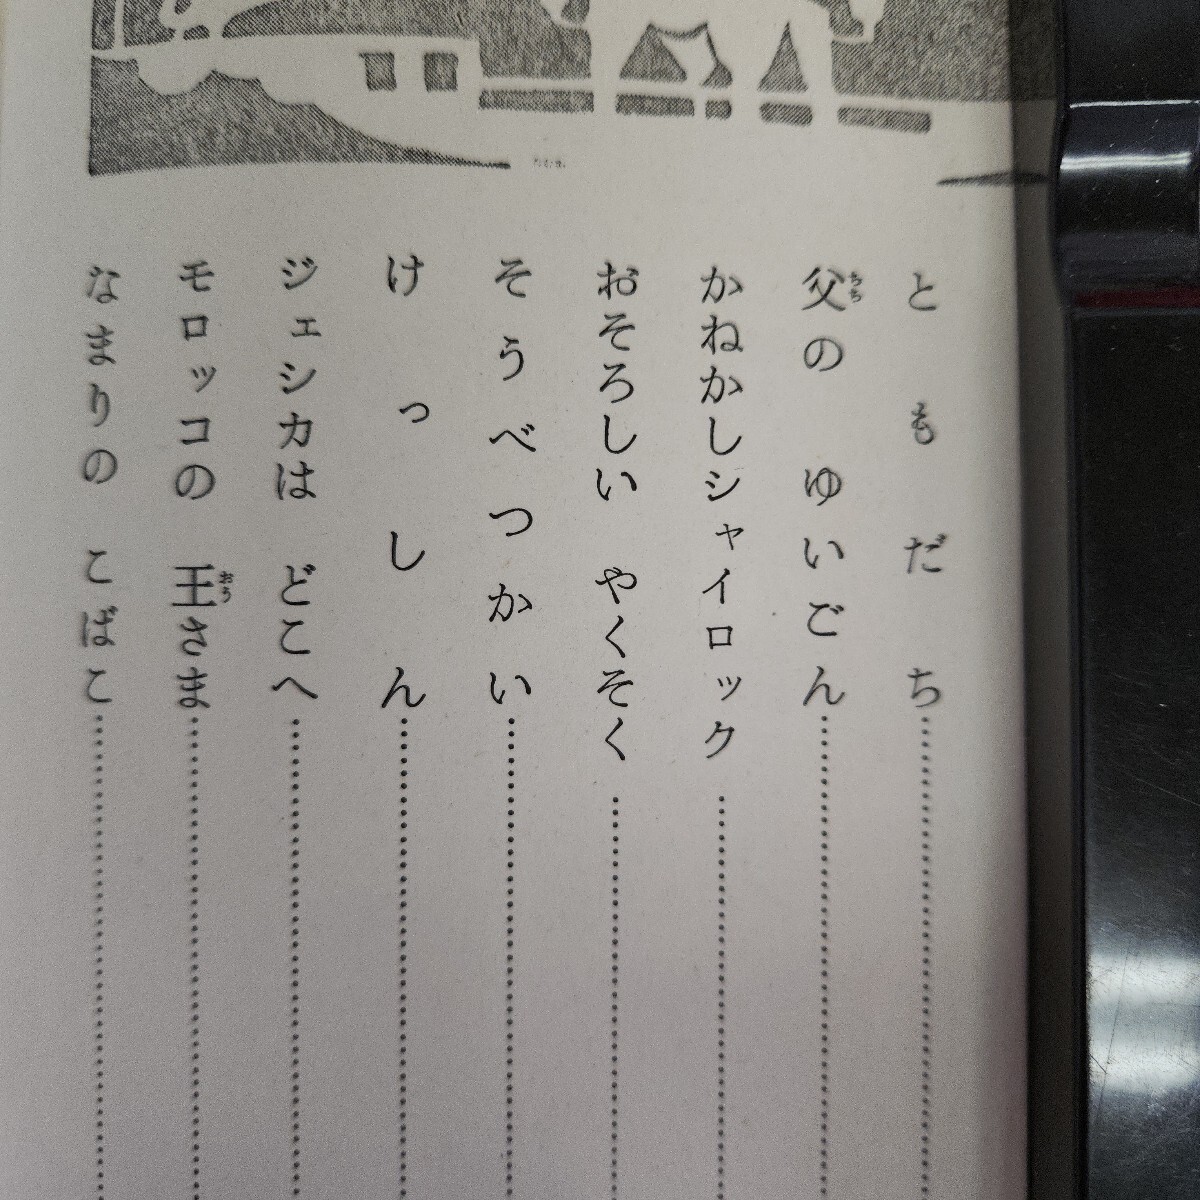 ともだち
父のゆいごん
ちち
かねかしシャイロック
おそろしい やくそく
そうべつかい
けっしん
ジェシカは どこへ
モロッコの 王さま
おう
なまりの こばこ